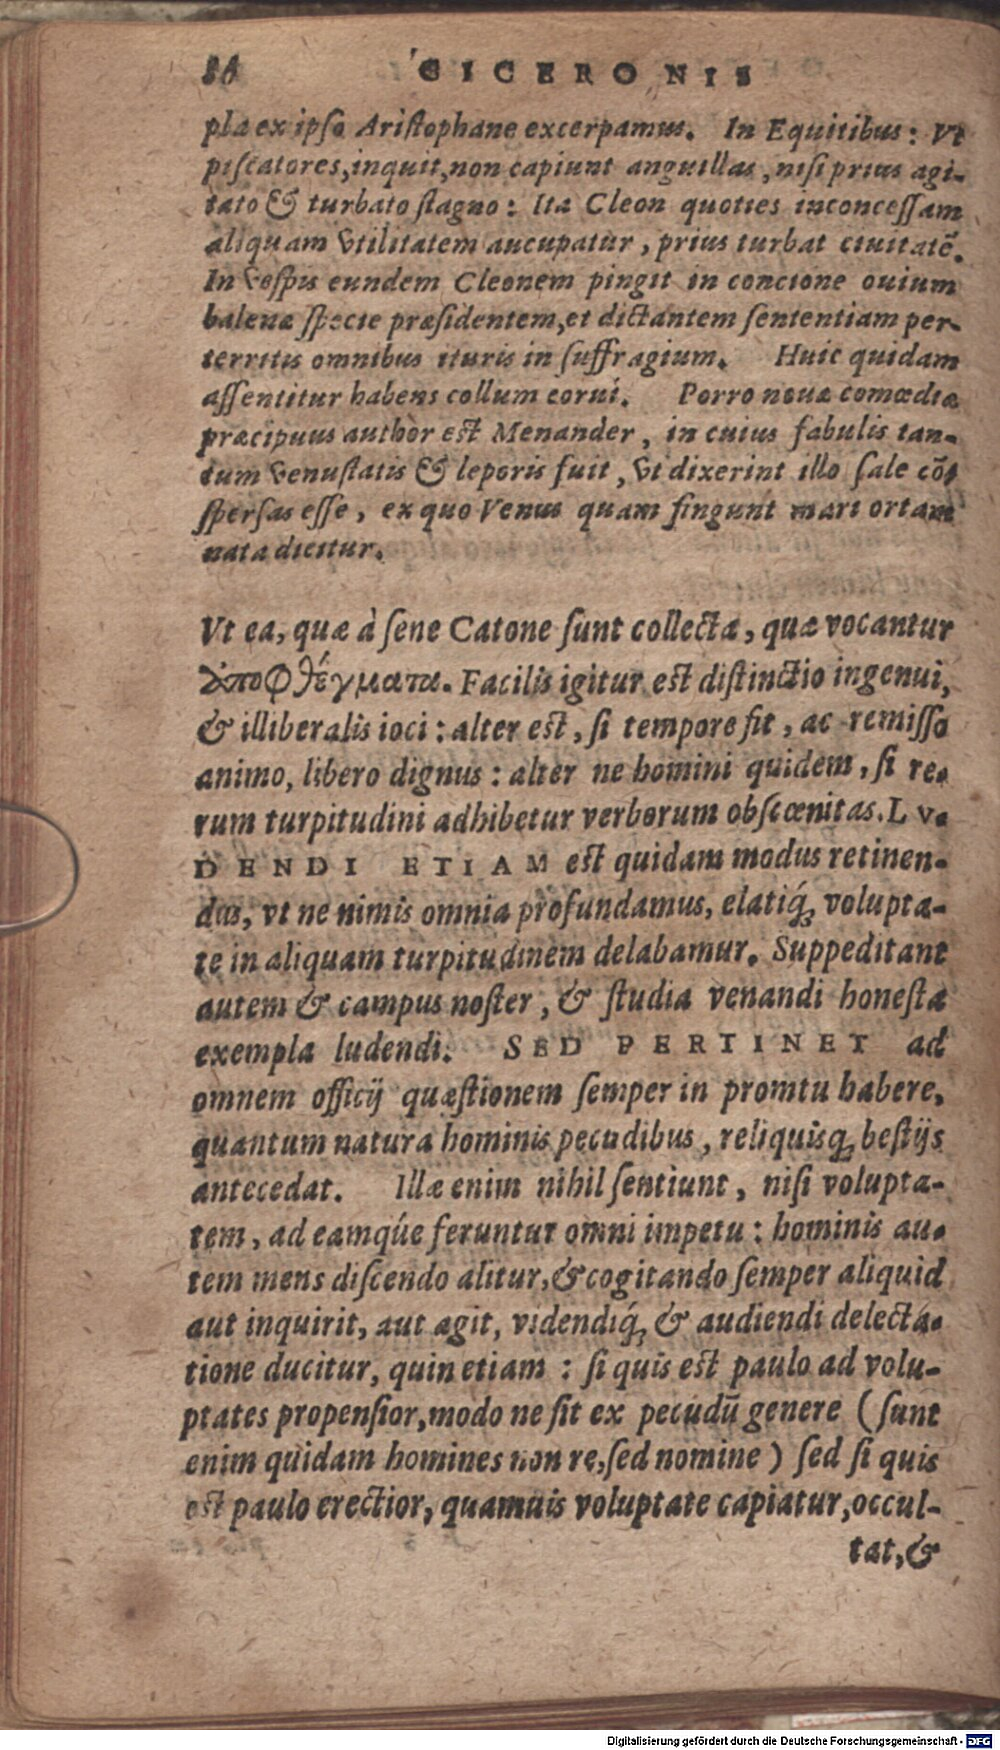 86 CICERONIS
pla ex ipso Aristophane excerpamus. In Equitibus: Vt
piscatores, inquit, non capiunt anguillas, nisi prius agi-
tato & turbato stagno: Ita Cleon quoties inconcessam
aliquam vtilitatem aucupatur, prius turbat ciuitatē.
In vespis eundem Cleonem pingit in concione ouium
balenæ specie præsidentem, et dictantem sententiam per-
territis omnibus ituris in suffragium. Huic quidam
assentitur habens collum corui. Porro nouæ comœdiæ
præcipuus author est Menander, in cuius fabulis tan-
tum venustatis & leporis fuit, vt dixerint illo sale cō-
spersas esse, ex quo Venus quam fingunt mari ortam
nata dicitur.
Vt ea, quæ à sene Catone sunt collecta, quæ vocantur
ἀποφθέγματα. Facilis igitur est distinctio ingenui,
& illiberalis ioci: alter est, si tempore fit, ac remisso
animo, libero dignus: alter ne homini quidem, si re-
rum turpitudini adhibetur verborum obscœnitas. LV-
DENDI ETIAM est quidam modus retinen-
dus, vt ne nimis omnia profundamus, elatiq́; volupta-
te in aliquam turpitudinem delabamur. Suppeditant
autem & campus noster, & studia venandi honesta
exempla ludendi. SED PERTINET ad
omnem officij quæstionem semper in promtu habere,
quantum natura hominis pecudibus, reliquisq; bestijs
antecedat. Illæ enim nihil sentiunt, nisi volupta-
tem, ad eamq́ue feruntur omni impetu: hominis au-
tem mens discendo alitur, & cogitando semper aliquid
aut inquirit, aut agit, videndiq́; & audiendi delecta-
tione ducitur, quin etiam: si quis est paulo ad volu-
ptates propensior, modo ne sit ex pecudū genere (sunt
enim quidam homines non re, sed nomine) sed si quis
est paulo erectior, quamuis voluptate capiatur, occul-
tat, &
Digitalisierung gefördert durch die Deutsche Forschungsgemeinschaft - DFG